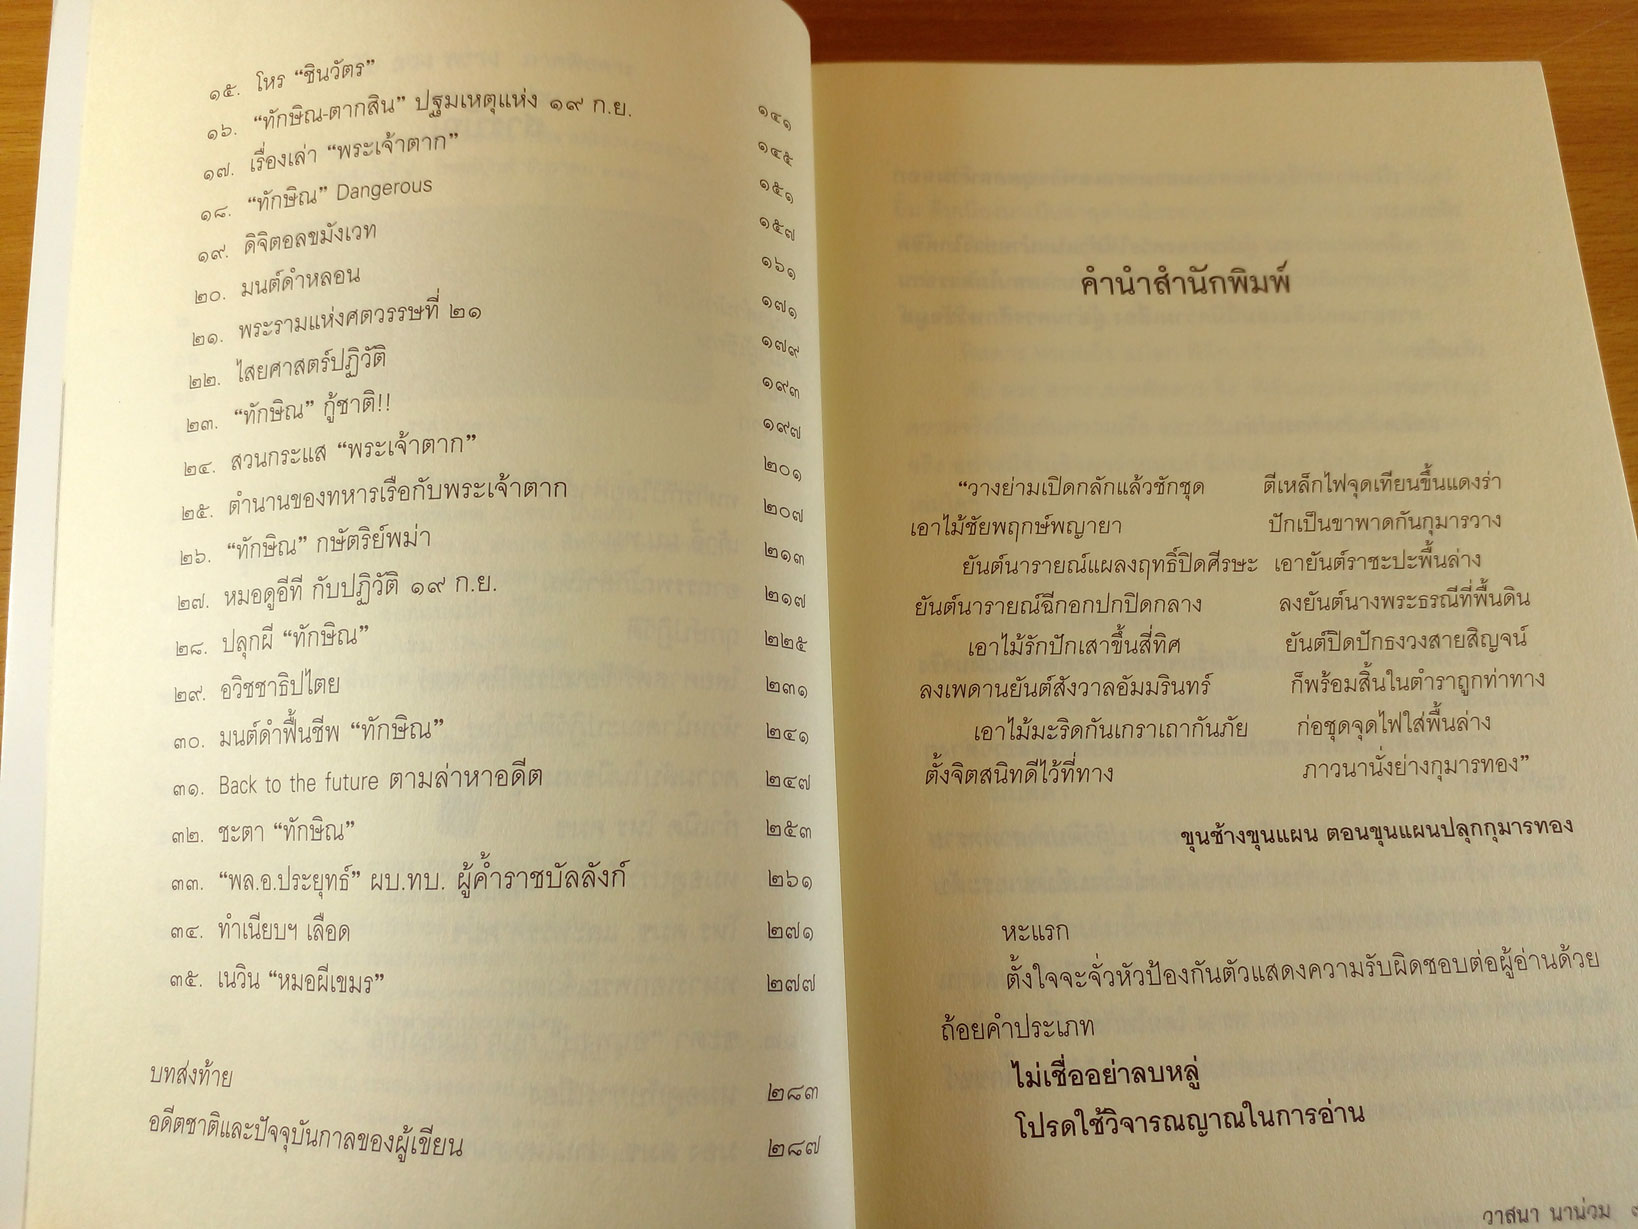 ๑๕. โหร “ชินวัตร” ๑๔๑
๑๖. “ทักษิณ-ตากสิน” ปฐมเหตุแห่ง ๑๙ ก.ย. ๑๔๕
๑๗. เรื่องเล่า “พระเจ้าตาก” ๑๕๑
๑๘. “ทักษิณ” Dangerous ๑๕๗
๑๙. ดิจิตอลขมังเวท ๑๖๑
๒๐. มนต์ดำหลอน ๑๗๑
๒๑. พระรามแห่งศตวรรษที่ ๒๑ ๑๗๙
๒๒. ไสยศาสตร์ปฏิวัติ ๑๙๓
๒๓. “ทักษิณ” กู้ชาติ!! ๑๙๗
๒๔. สวนกระแส “พระเจ้าตาก” ๒๐๑
๒๕. ตำนานของทหารเรือกับพระเจ้าตาก ๒๐๗
๒๖. “ทักษิณ” กษัตริย์พม่า ๒๑๓
๒๗. หมอดูอีที กับปฏิวัติ ๑๙ ก.ย. ๒๑๗
๒๘. ปลุกผี “ทักษิณ” ๒๒๕
๒๙. อวิชชาธิปไตย ๒๓๑
๓๐. มนต์ดำฟื้นชีพ “ทักษิณ” ๒๔๑
๓๑. Back to the future ตามล่าหาอดีต ๒๔๗
๓๒. ชะตา “ทักษิณ” ๒๕๓
๓๓. “พล.อ.ประยุทธ์” ผบ.ทบ. ผู้ค้ำราชบัลลังก์ ๒๖๑
๓๔. ทำเนียบฯ เลือด ๒๗๑
๓๕. เนวิน “หมอผีเขมร” ๒๗๗
บทส่งท้าย ๒๘๓
อดีตชาติและปัจจุบันกาลของผู้เขียน ๒๘๗
คำนำสำนักพิมพ์
“วางย่ามเปิดกลักแล้วชักชุด ตีเหล็กไฟจุดเทียนขึ้นแดงร่า
เอาไม้ชัยพฤกษ์พญายา ปักเป็นขาพาดกันกุมารวาง
ยันต์นารายณ์แผลงฤทธิ์ปิดศีรษะ เอายันต์ราชะปะพื้นล่าง
ยันต์นารายณ์ฉีกอกปกปิดกลาง ลงยันต์นางพระธรณีที่พื้นดิน
เอาไม้รักปักเสาขึ้นสี่ทิศ ยันต์ปิดปักธงวงสายสิญจน์
ลงเพดานยันต์สังวาลอัมมรินทร์ ก็พร้อมสิ้นในตำราถูกท่าทาง
เอาไม้มะริดกันเกราเถากันภัย ก่อชุดจุดไฟใส่พื้นล่าง
ตั้งจิตสนิทดีไว้ที่ทาง ภาวนานั่งย่างกุมารทอง”
ขุนช้างขุนแผน ตอนขุนแผนปลุกกุมารทอง
หะแรก
ตั้งใจจะจั่วหัวป้องกันตัวแสดงความรับผิดชอบต่อผู้อ่านด้วย
ถ้อยคำประเภท
ไม่เชื่ออย่าลบหลู่
โปรดใช้วิจารณญาณในการอ่าน
วาสนา นาน่วม